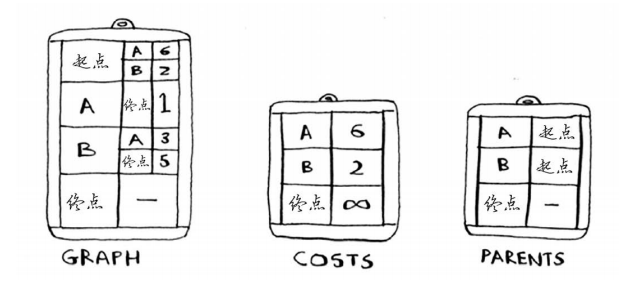 起点 A 6
B 2
A 终点 1
B A 3
终点 5
终点 —
GRAPH
A 6
B 2
终点 ∞
COSTS
A 起点
B 起点
终点 —
PARENTS